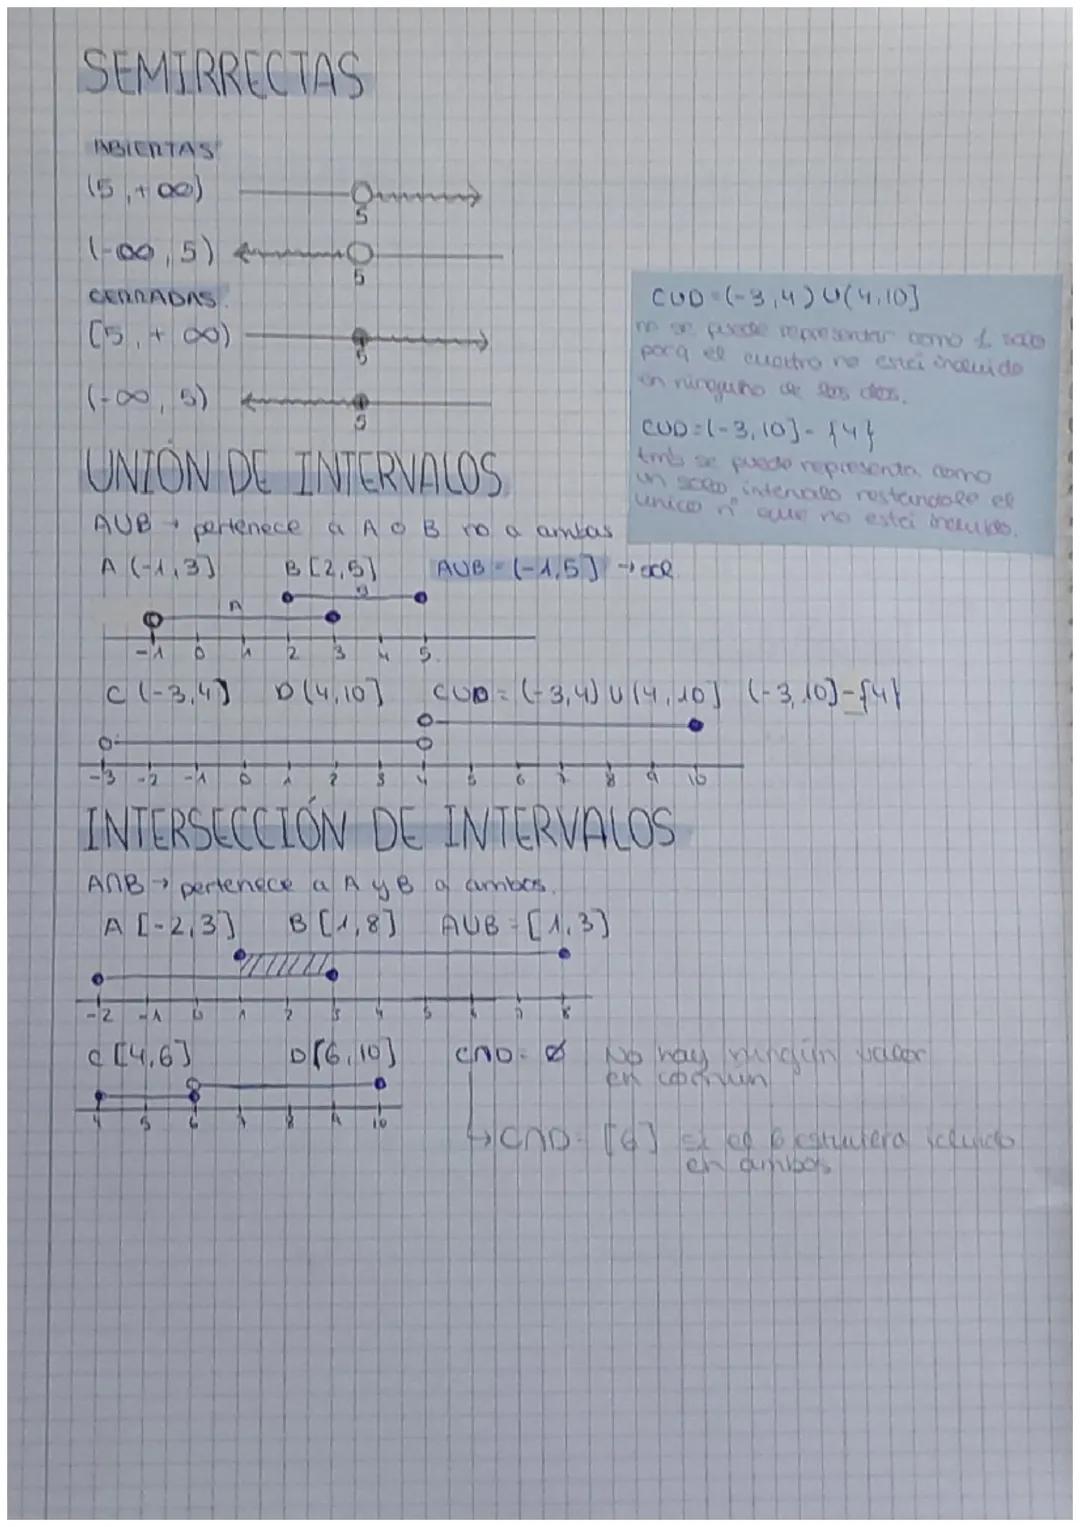 SEMIRRECTAS
ABIERTAS
(5,+∞)
5
(-∞,5)
5
CERRADAS.
[5,+∞)
5
(-∞,5)
5
CUD=(-3,4)U(4,10]
no se puede representar como 1 solo
porq el cuatro no está incluido
en ninguno de los dos.
CUD=(-3,10]-{4}
tmb se puede representa como
un solo intervalo restandole el
unico nº que no está incluido.
UNIÓN DE INTERVALOS
AUB → pertenece a A O B no a ambas
A (-1,3] B [2,5] AUB=(-1,5] →
A B
-1 0 1 2 3 4 5
C (-3,4) D (4,10] CUD=(-3,4)U(4,10] (-3,10]-{4}
-3 -2 -1 0 1 2 3 4 5 6 7 8 9 10
INTERSECCIÓN DE INTERVALOS
A∩B → pertenece a A y B a ambos.
A [-2,3] B [1,8] AUB=[1,3]
-2 -1 0 1 2 3 4 5 6 7 8
C [4,6] D [6,10] C∩D=Ø No hay ningún valor
en común
4 5 6 7 8 9 10
↳ C∩D=[6] si el 6 estuviera icluido
en ambos